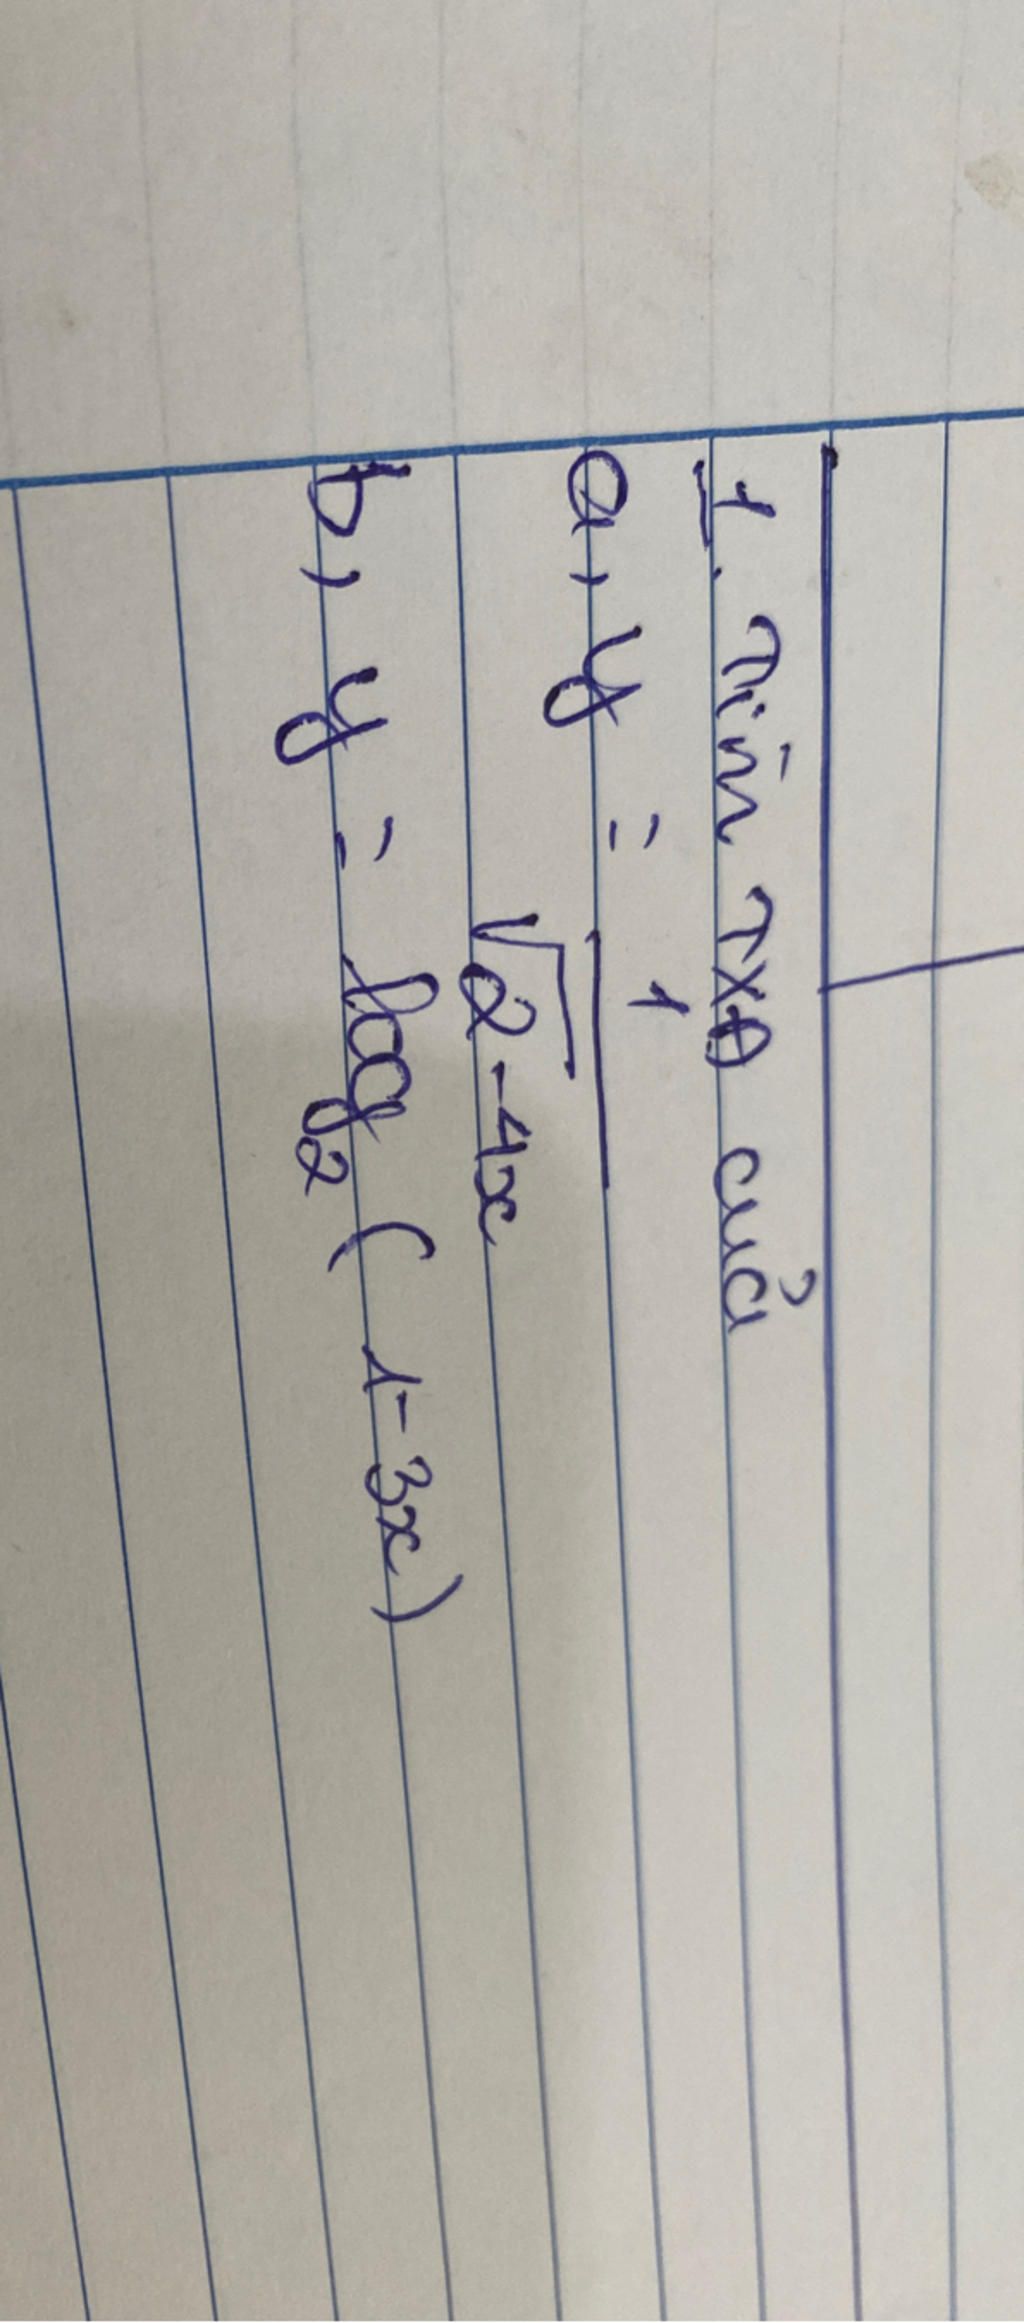 1. Tìm TXĐ của
a, y = 1/√2-4x
b, y = log₂ (1-3x)